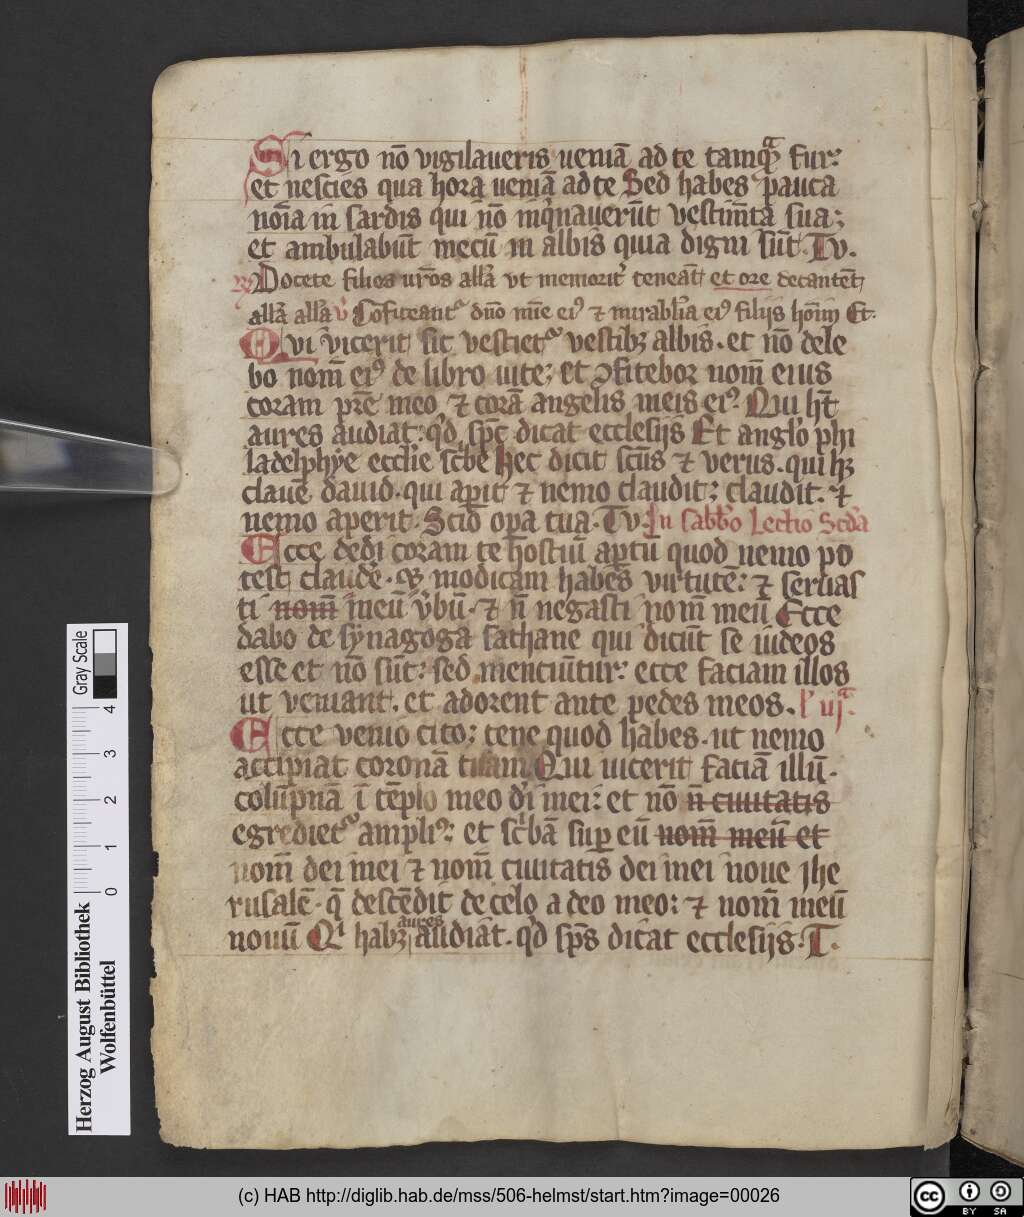 Si ergo nō vigilaveris veniā ad te tamqᷓ fur:
et nescies qua hora veniā ad te Sed habes pauca
noīa in sardis qui nō inqͥnaverūt vestim̄ta sua;
et ambulabūt mecū in albis quia digni sūt. Tu.
Docete filios ur̄os all'a ut memorit' teneāt et ore decantent
all'a all'a v' Cōfiteantᷣ dn̄o mīe eiꝰ ⁊ mirabl'ia eiꝰ filijs hōim Et.
Qui vicerit sic vestietᷣ vestibꝫ albis. et nō dele
bo nom̄ eiꝰ de libro vite; et ꝯfitebor nom̄ eius
coram pr̄e meo ⁊ corā angelis meis eiꝰ. Qui hꝫ
aures audiat: qͥd sp̄c dicat ecclesijs Et anglo phi
ladelphye eccl'ie sc͛be Hec dicit sc̄us ⁊ verus. qui hꝫ
clavē david. qui apit ⁊ nemo claudit; claudit. ⁊
nemo aperit. Scio opa tua. Tu. In sabb'o Lectio Scd'a
Ecce dedi coram te hostiū aptū quod nemo po
test claude. qꝫ modicam habes virtutē: ⁊ servas
ti nom̄ meū v͛bū. ⁊ n̄ negasti nom̄ meū Ecce
dabo de synagoga sathane qui dicūt se iudeos
esse et nō sūt: sed menciūtur: ecce faciam illos
ut veniant. et adorent ante pedes meos. l' iijᷓ.
Ecce venio cito; tene quod habes. ut nemo
accipiat coronā tuam Qui vicerit faciā illū.
colūpnā ī tēplo meo dī mei: et nō n̄ civitatis
egredietᷣ ampliꝰ: et sc͛bā sup eū nom̄ meū et
nom̄ dei mei ⁊ nom̄ civitatis dei mei noue jhe
rusalē. q̄ descēdit de celo a deo meo: ⁊ nom̄ meū
novū Qͥ habꝫ aures audiāt. qͥd sp̄s dicat ecclesijs. T.
Gray Scale
4
3
2
1
0
Herzog August Bibliothek
Wolfenbüttel
(c) HAB http://diglib.hab.de/mss/506-helmst/start.htm?image=00026
cc BY SA